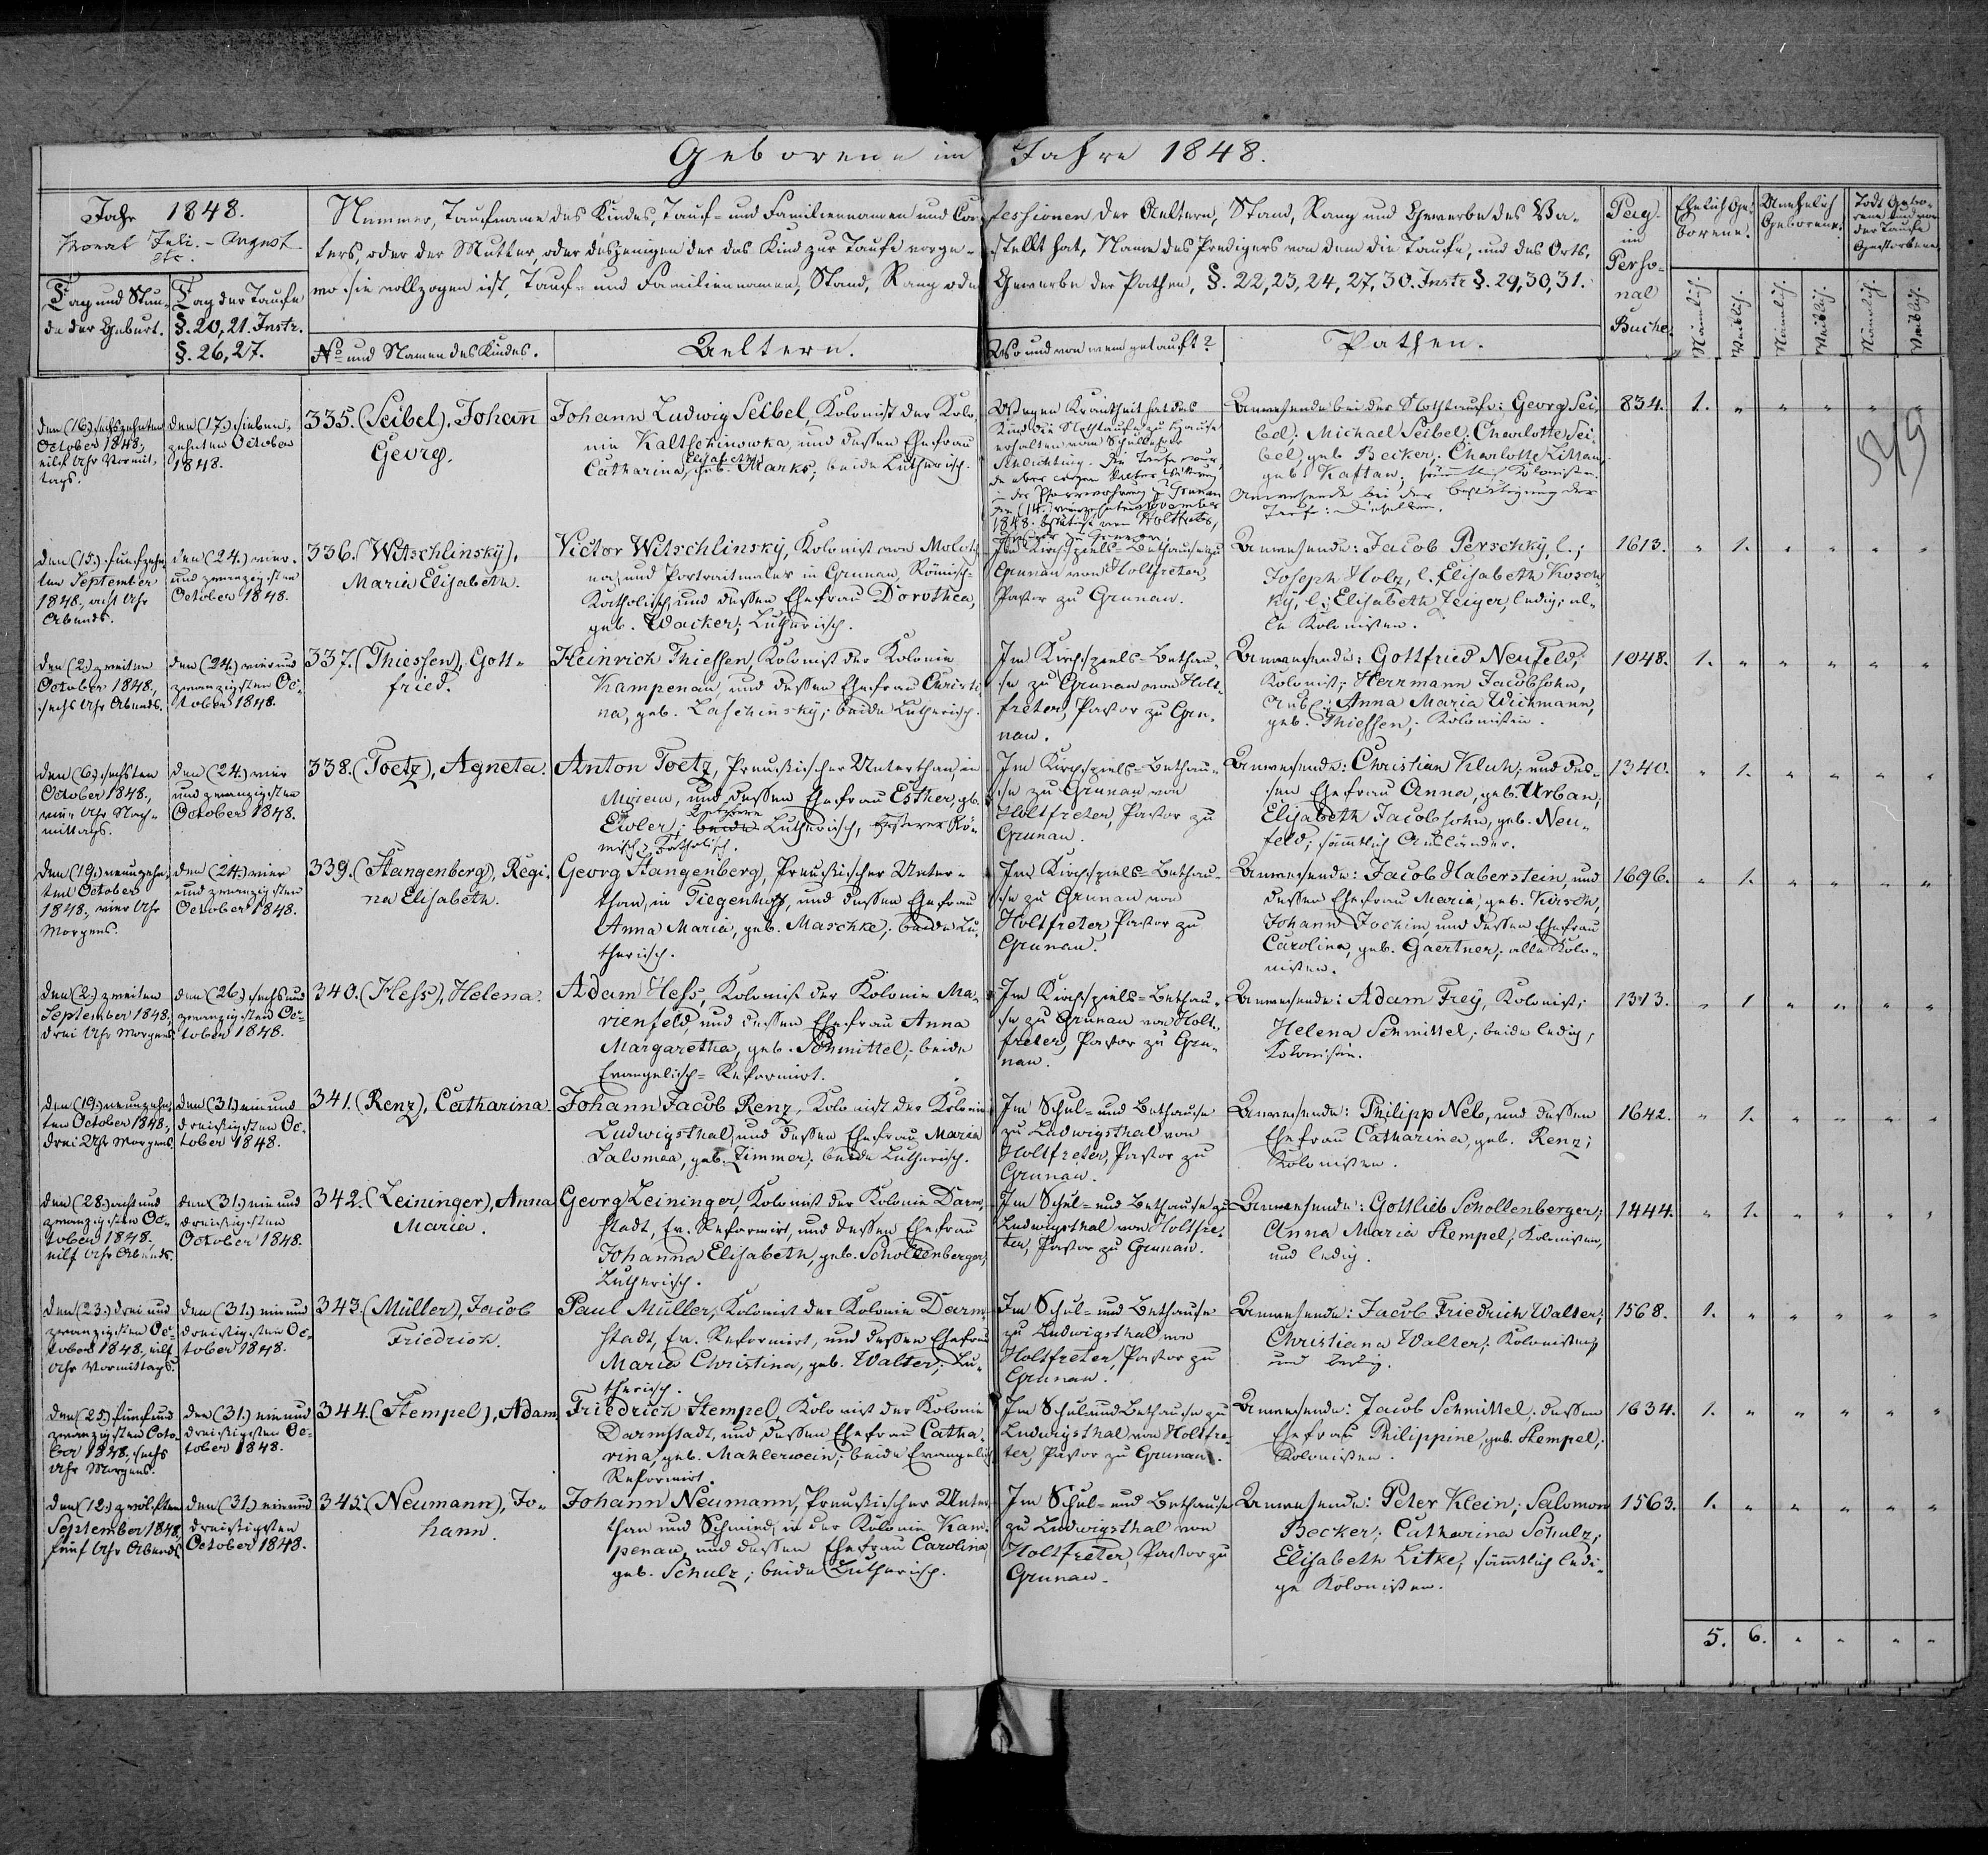 Geborene im Jahre 1848.
Jahr 1848.
Monat Juli. - August
etc.
Tag und Stun-
de der Geburt.
Tag der Taufe
§. 20, 21. Instr.
§. 26, 27.
Nummer, Taufname des Kindes, Tauf- und Familiennamen und Con-
fessionen der Aeltern, Stand, Rang und Gewerbe des Va-
ters, oder der Mutter, oder desjenigen der das Kind zur Taufe vorge-
stellt hat, Name des Predigers von dem die Taufe, und des Orts,
wo sie vollzogen ist, Tauf- und Familiennamen, Stand, Rang oder
Gewerbe der Pathen, §. 22, 23, 24, 27, 30. Instr. §. 29, 30, 31.
No und Namen des Kindes.
Aeltern.
Wo und von wem getauft?
Pathen.
Pag.
im
Perso-
nal
Buche.
Ehelich Ge-
borene.
Unehelich
Geborene.
Todt Gebo-
rene und vor
der Taufe
Gestorbene.
Männlich.
Weiblich.
Männlich.
Weiblich.
Männlich.
Weiblich.
den (16.) sechszehnten
October 1848.,
eilf Uhr Vormit-
tags.
den (17.) sieben-
zehnten October
1848.
335. (Seibel), Johann
Georg.
Johann Ludwig Seibel, Kolonist der Kolo-
nie Kaltschinowka, und dessen Ehefrau
Elisabeth
Catharina, geb. Marks; beide Lutherisch.
Wegen Krankheit hat das
Kind die Nothtaufe zu Hause
erhalten vom Schullehrer
Schlichting. Die Taufe wur-
de aber wegen kalter Witterung
in der Pfarrwohnung zu Grunau
den (14.) vierzehnten November
1848. bestätigt von Holtfreter,
Pastor zu Grunau.
Anwesende bei der Nothtaufe: Georg Sei-
bel; Michael Seibel; Charlotte Sei-
bel, geb. Becker; Charlotte
geb. Kaftan; sämmtlich Kolonisten.
Anwesende bei der Bestätigung der
Taufe: dieselben.
834. 1. " " " " "
349
den (15.) fünfzehn-
ten September
1848., acht Uhr
Abends.
den (24.) vier-
und zwanzigsten
October 1848.
336. (Witschlinsky),
Maria Elisabeth.
Victor Witschlinsky, Kolonist von Moloth-
na, und Portraitmaler in Grunau, Römisch-
Katholisch, und dessen Ehefrau Dorothea,
geb. Wacker; Lutherisch.
Im Kirchspiels-Bethause zu
Grunau von Holtfreter,
Pastor zu Grunau.
Anwesende: Jacob Perschky, l.;
Joseph Holz, l. Elisabeth Kosch-
ky, l.; Elisabeth Zeiger, ledig; al-
le Kolonisten.
1613. " 1. " " " "
den (2.) zweiten
October 1848.,
sechs Uhr Abends.
den (24.) vier und
zwanzigsten Oc-
tober 1848.
337. (Thiessen), Gott-
fried.
Heinrich Thiessen, Kolonist der Kolonie
Kampenau, und dessen Ehefrau Christi-
na, geb. Laschinsky; beide Lutherisch.
Im Kirchspiels-Bethau-
se zu Grunau von Holt-
freter, Pastor zu Gru-
nau.
Anwesende: Gottfried Neufeld,
Kolonist; Herrmann Jacobsohn,
Ausl.; Anna Maria Wichmann,
geb. Thiessen; Kolonisten.
1048. 1. " " " " "
den (6.) sechsten
October 1848.,
vier Uhr Nach-
mittags.
den (24.) vier
und zwanzigsten
October 1848.
338. (Toetz), Agneta.
Anton Toetz, Preussischer Unterthan, in
und dessen Ehefrau Esther, gb.
Letztere
Ewler; beide Lutherisch, Ersterer Rö-
misch-Katholisch.
Im Kirchspiels-Bethau-
se zu Grunau von
Holtfreter, Pastor zu
Grunau.
Anwesende: Christian Kluh; und des-
sen Ehefrau Anna, geb. Urban;
Elisabeth Jacobsohn, geb. Neu-
feld; sämmtlich Ausländer.
1340. " 1. " " " "
den (19.) neunzehn-
ten October
1848., vier Uhr
Morgens.
den (24.) vier
und zwanzigsten
October 1848.
339. (Stangenberg), Regi-
na Elisabeth.
Georg Stangenberg, Preussischer Unter-
than, in Tiegenhoff, und dessen Ehefrau
Anna Maria, geb. Maschke; beide Lu-
therisch.
Im Kirchspiels-Bethau-
se zu Grunau von
Holtfreter, Pastor zu
Grunau.
Anwesende: Jacob Haberstein, und
dessen Ehefrau Maria, geb. Kirsch,
Johann Jochim und dessen Ehefrau
Carolina, geb. Gaertner; alle Kolo-
nisten.
1696. " 1. " " " "
den (2.) zweiten
September 1848.,
drei Uhr Morgens.
den (26.) sechs und
zwanzigsten Oc-
tober 1848.
340. (Hess), Helena.
Adam Hess, Kolonist der Kolonie Ma-
rienfeld, und dessen Ehefrau Anna
Margaretha, geb. Schmittel; beide
Evangelisch-Reformirt.
Im Kirchspiels-Bethau-
se zu Grunau von Holt-
freter, Pastor zu Gru-
nau.
Anwesende: Adam Frey, Kolonist;
Helena Schmittel; beide ledig,
Kolonisten.
1313. " 1 " " " "
den (19.) neunzehn-
ten October 1848.,
drei Uhr Morgens.
den (31.) ein und
dreissigsten Oc-
tober 1848.
341. (Renz), Catharina.
Johann Jacob Renz, Kolonist der Kolonie
Ludwigsthal, und dessen Ehefrau Maria
Salomea, geb. Zimmer; beide Lutherisch.
Im Schul- und Bethause
zu Ludwigsthal von
Holtfreter, Pastor zu
Grunau.
Anwesende: Philipp Neb, und dessen
Ehefrau Catharina, geb. Renz;
Kolonisten.
1642. " 1. " " " "
den (28.) acht und
zwanzigsten Oc-
tober 1848.,
eilf Uhr Abends.
den (31.) ein und
dreissigsten
October 1848.
342. (Leininger), Anna
Maria.
Georg Leininger, Kolonist der Kolonie Darm-
stadt, Ev. Reformirt, und dessen Ehefrau
Johanna Elisabeth, geb. Schollenberger;
Lutherisch.
Im Schul- und Bethause zu
Ludwigsthal von Holtfre-
ter, Pastor zu Grunau.
Anwesende: Gottlieb Schollenberger;
Anna Maria Stempel; Kolonisten,
und ledig.
1444. " 1. " " " "
den (23.) drei und
zwanzigsten Oc-
tober 1848., eilf
Uhr Vormittags.
den (31.) ein und
dreissigsten Oc-
tober 1848.
343. (Müller), Jacob
Friedrich.
Paul Müller, Kolonist der Kolonie Darm-
stadt, Ev. Reformirt, und dessen Ehefrau
Maria Christina, geb. Walter; Lu-
therisch.
Im Schul- und Bethause
zu Ludwigsthal von
Holtfreter, Pastor zu
Grunau.
Anwesende: Jacob Friedrich Walter;
Christiana Walter; Kolonisten
und ledig.
1568. 1. " " " " "
den (25.) fünf und
zwanzigsten Octo-
ber 1848., sechs
Uhr Morgens.
den (31.) ein und
dreissigsten Oc-
tober 1848.
344. (Stempel), Adam.
Friedrich Stempel, Kolonist der Kolonie
Darmstadt, und dessen Ehefrau Catha-
rina, geb. Mahlerwein; beide Evangelisch
Reformirt.
Im Schul und Bethause zu
Ludwigsthal von Holtfre-
ter, Pastor zu Grunau.
Anwesende: Jacob Schmittel, dessen
Ehefrau Philippine, geb. Stempel;
Kolonisten.
1634. 1. " " " " "
den (12.) zwölften
September 1848.
fünf Uhr Abends
den (31.) ein und
dreissigsten
October 1848.
345. (Neumann), Jo-
hann.
Johann Neumann, Preussischer Unter-
than und Schmied, in der Kolonie Kam-
penau, und dessen Ehefrau Carolina,
geb. Schulz; beide Lutherisch.
Im Schul- und Bethause
zu Ludwigsthal von
Holtfreter, Pastor zu
Grunau.
Anwesende: Peter Klein; Salomon
Becker; Catharina Schulz;
Elisabeth Litke; sämmtlich ledi-
ge Kolonisten.
1563. 1. " " " " "
5. 6. " " " "